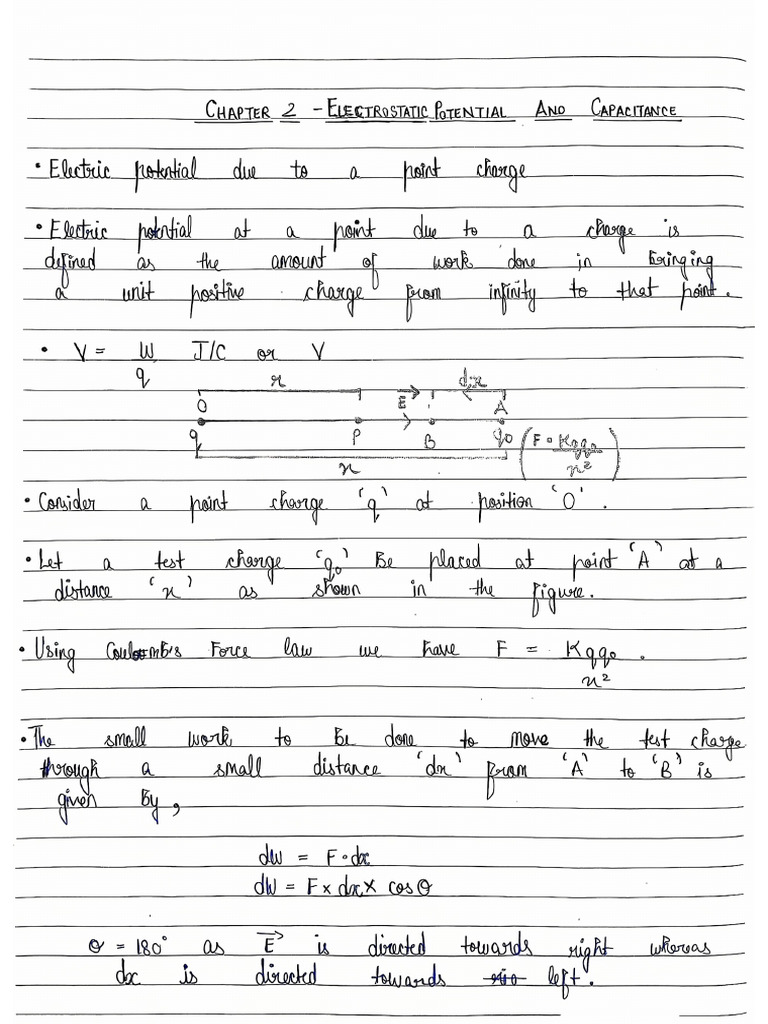 CHAPTER 2 - ELECTROSTATIC POTENTIAL AND CAPACITANCE
• Electric potential due to a point charge
• Electric potential at a point due to a charge is
defined as the amount of work done in bringing
a unit positive charge from infinity to that point.
• V = W/q J/C or V
r E dx
O A
q P B q₀ (F = Kqq₀/x²)
x
• Consider a point charge 'q' at position 'O'.
• Let a test charge 'q₀' be placed at point 'A' at a
distance 'x' as shown in the figure.
• Using Coulombs Force law we have F = Kqq₀/x².
• The small work to be done to move the test charge
through a small distance 'dx' from 'A' to 'B' is
given by,
dW = F·dx
dW = F x dx x cosθ
θ = 180° as E→ is directed towards right whereas
dx is directed towards left.